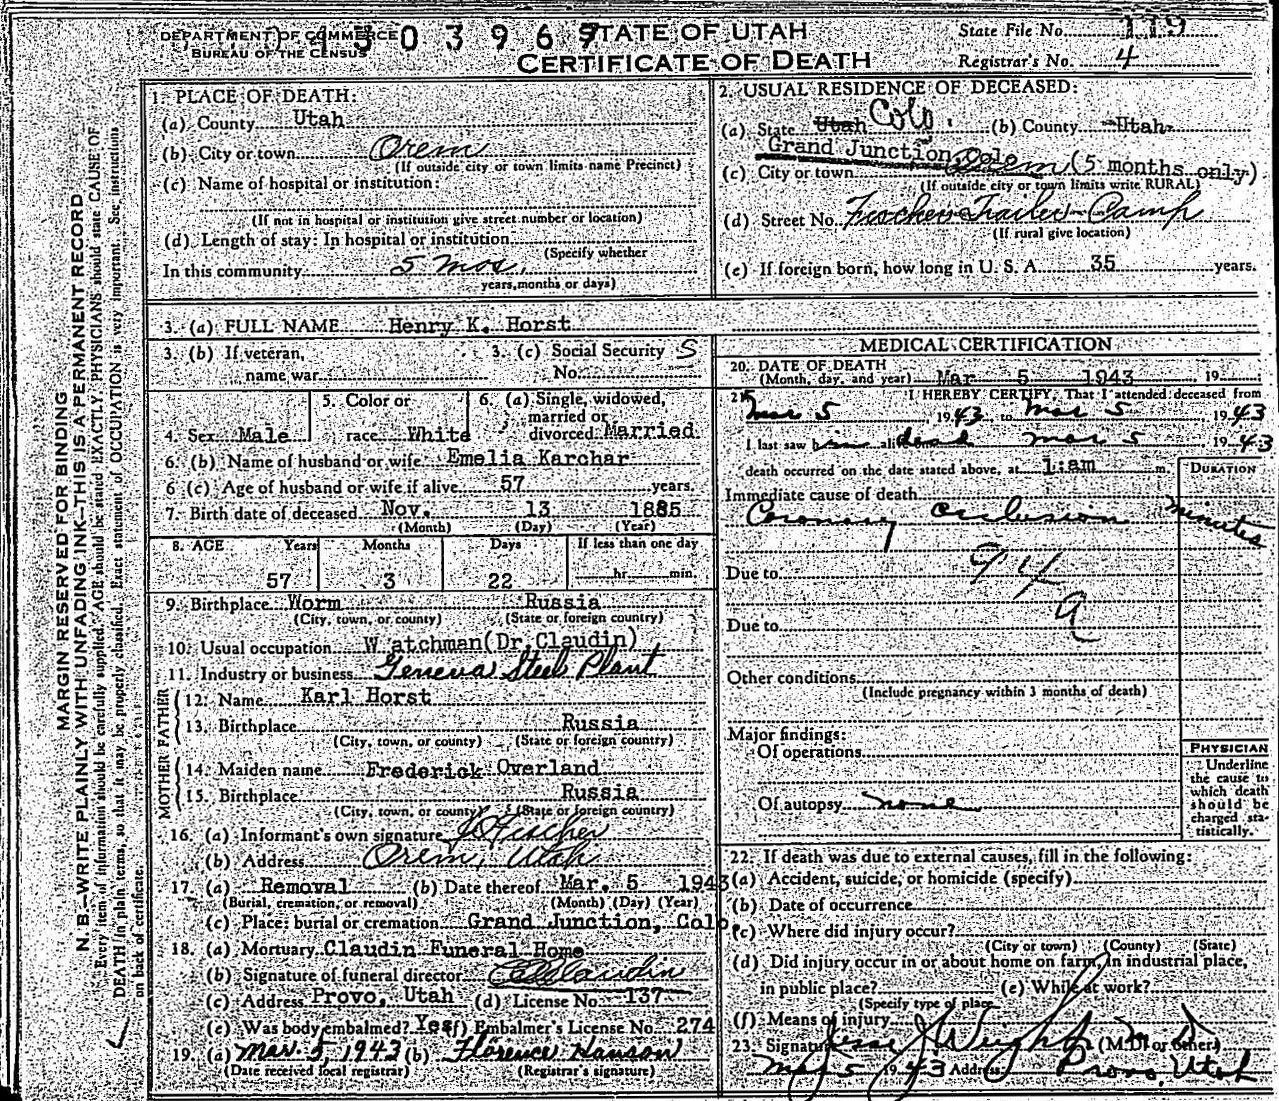 DEPARTMENT OF COMMERCE
BUREAU OF THE CENSUS
STATE OF UTAH
CERTIFICATE OF DEATH
State File No. 119
Registrar's No. 4
MARGIN RESERVED FOR BINDING
N. B.—WRITE PLAINLY WITH UNFADING INK—THIS IS A PERMANENT RECORD
Every item of information should be carefully supplied. AGE should be stated EXACTLY. PHYSICIANS should state CAUSE OF
DEATH in plain terms, so that it may be properly classified. Exact statement of OCCUPATION is very important. See instructions
on back of certificate.
1. PLACE OF DEATH:
(a) County Utah
(b) City or town Orem
(If outside city or town limits name Precinct)
(c) Name of hospital or institution:
(If not in hospital or institution give street number or location)
(d) Length of stay: In hospital or institution
(Specify whether
In this community 5 mos.
years, months or days)
2. USUAL RESIDENCE OF DECEASED:
(a) State Utah Colo. (b) County Utah
Grand Junction, Colo
(c) City or town Orem (5 months only)
(If outside city or town limits write RURAL)
(d) Street No. Fischer Trailer Camp
(If rural give location)
(e) If foreign born, how long in U. S. A. 35 years.
3. (a) FULL NAME Henry K. Horst
3. (b) If veteran,
name war
3. (c) Social Security
No.
4. Sex Male
5. Color or
race White
6. (a) Single, widowed,
married or
divorced Married
6. (b) Name of husband or wife Emelia Karchar
6 (c) Age of husband or wife if alive 57 years.
7. Birth date of deceased Nov. 13 1885
(Month) (Day) (Year)
8. AGE Years Months Days If less than one day
57 3 22 hr. min.
9. Birthplace Worm Russia
(City, town, or county) (State or foreign country)
10. Usual occupation W atchman(Dr Claudin)
11. Industry or business Geneva Steel Plant
FATHER
12. Name Karl Horst
13. Birthplace Russia
(City, town, or county) (State or foreign country)
MOTHER
14. Maiden name Frederick Overland
15. Birthplace Russia
(City, town, or county) (State or foreign country)
16. (a) Informant's own signature Fischer
(b) Address Orem, Utah
17. (a) Removal (b) Date thereof Mar. 5 1943
(Burial, cremation, or removal) (Month) (Day) (Year)
(c) Place: burial or cremation Grand Junction, Colo.
18. (a) Mortuary Claudin Funeral Home
(b) Signature of funeral director Claudin
(c) Address Provo, Utah (d) License No. 137
(e) Was body embalmed? Yes (f) Embalmer's License No. 274
19. (a) Mar. 5, 1943 (b) Florence Hanson
(Date received local registrar) (Registrar's signature)
MEDICAL CERTIFICATION
20. DATE OF DEATH
(Month, day, and year) Mar 5 1943, 19
21. I HEREBY CERTIFY, That I attended deceased from
Mar 5 1943 to Mar 5 1943
I last saw him alive dead Mar 5 1943
death occurred on the date stated above, at 1:am m.
DURATION
Immediate cause of death
Coronary occlusion minutes
Due to 94
a
Due to
Other conditions
(Include pregnancy within 3 months of death)
Major findings:
Of operations
Of autopsy none
PHYSICIAN
Underline
the cause to
which death
should be
charged sta-
tistically.
22. If death was due to external causes, fill in the following:
(a) Accident, suicide, or homicide (specify)
(b) Date of occurrence
(c) Where did injury occur?
(City or town) (County) (State)
(d) Did injury occur in or about home on farm, in industrial place,
in public place? (e) While at work?
(Specify type of place
(f) Means of injury
23. Signature M.D. (M.D. or other)
Mar 5 1943 Address Provo, Utah